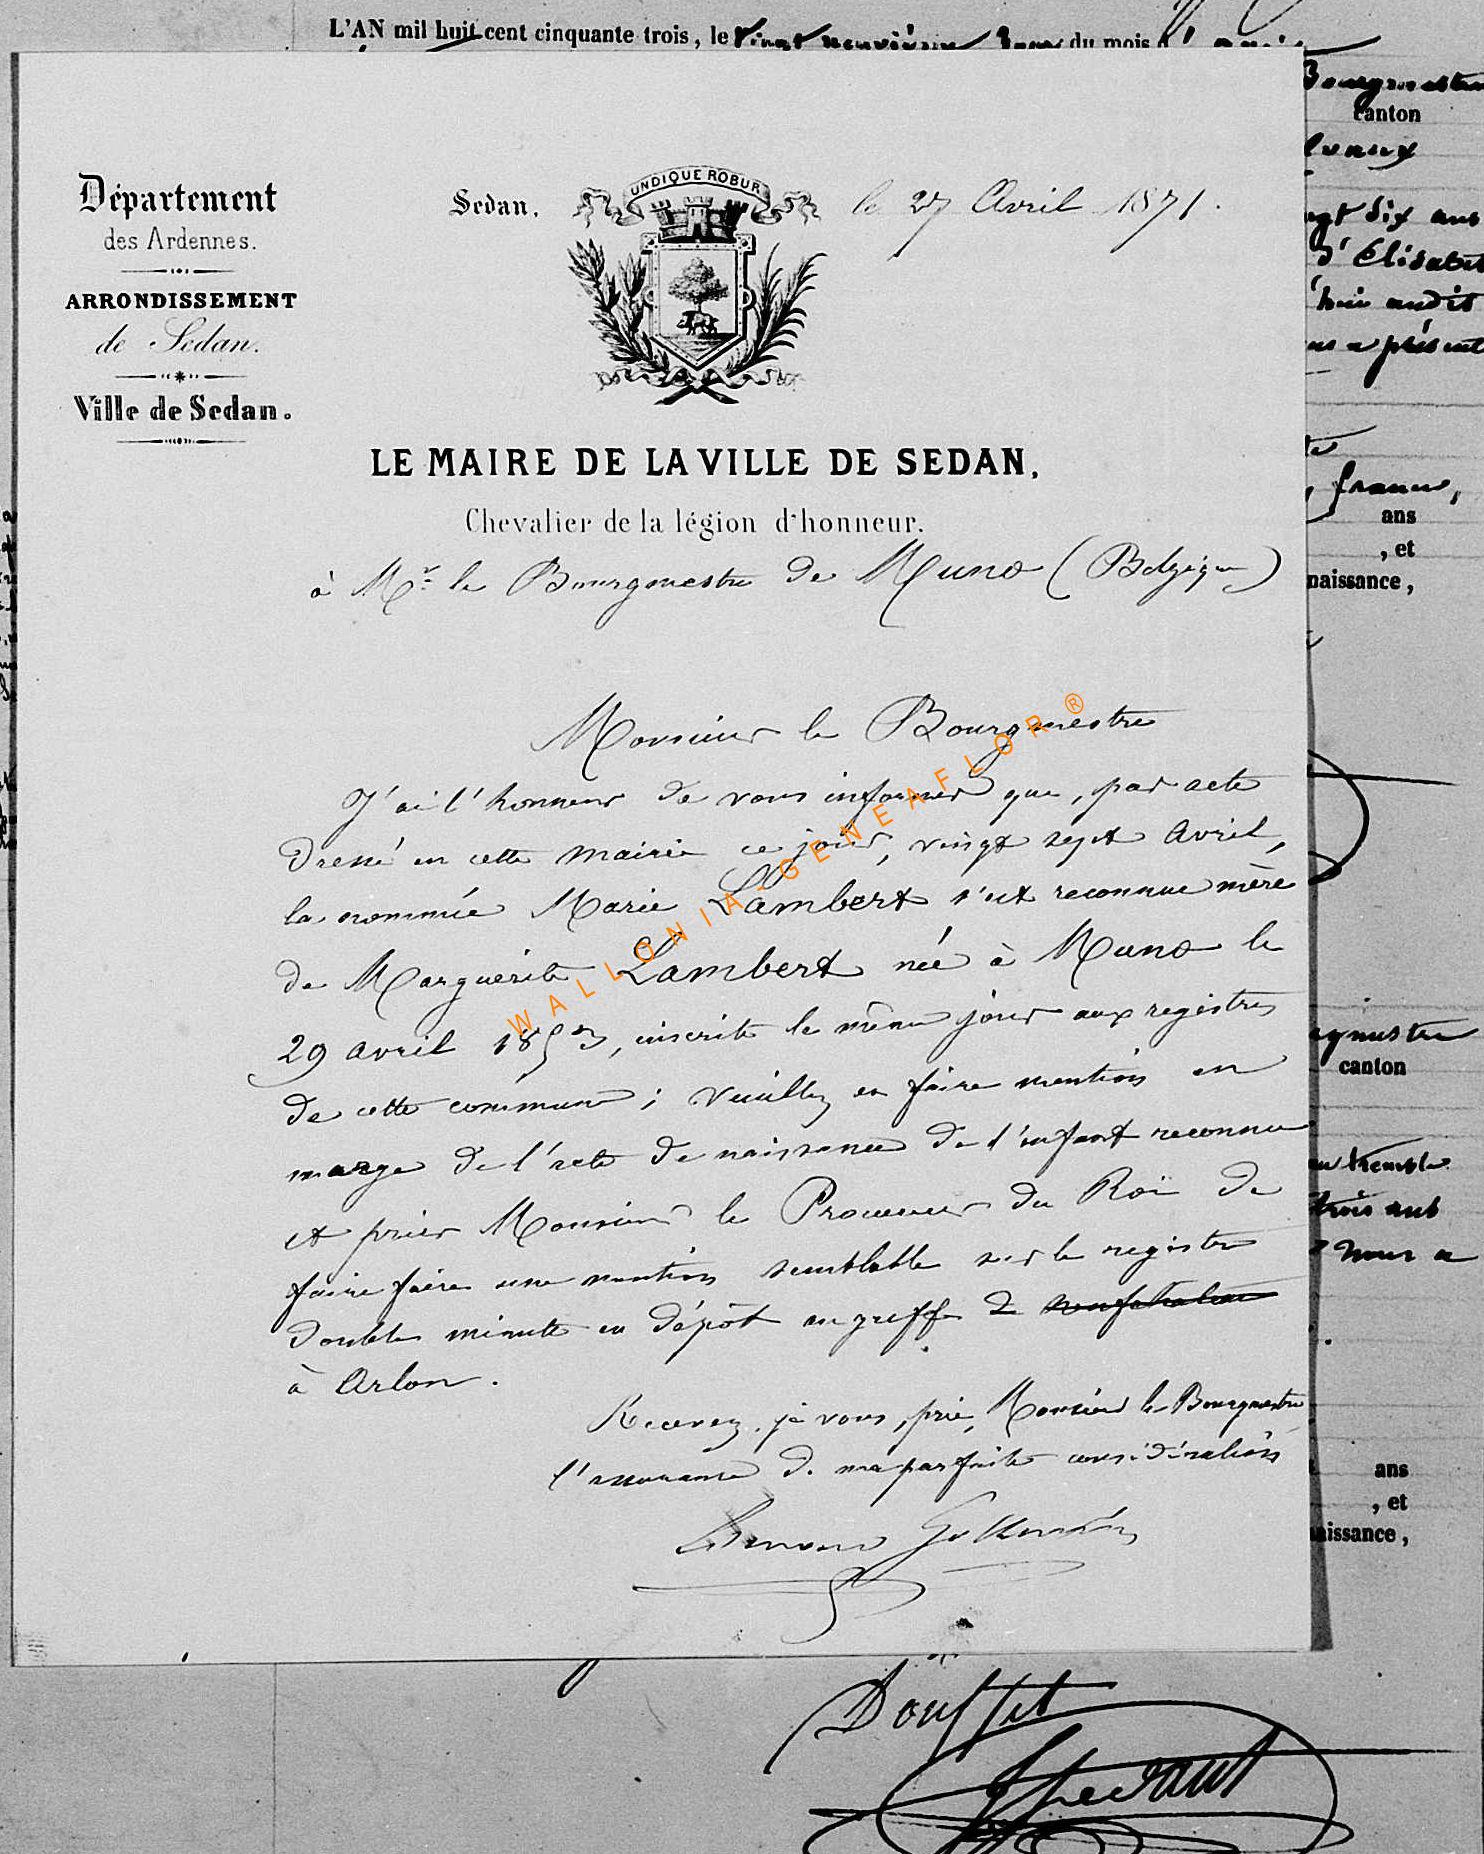 L'AN mil huit cent cinquante trois, le vingt neuvième jour du mois d'avril
Bourgmestre
canton
Département
des Ardennes.
ARRONDISSEMENT
de Sedan.
Ville de Sedan.
UNDIQUE ROBUR
Sedan, le 27 Avril 1871.
dix ans
d'Elisabeth
audit
a présenté
LE MAIRE DE LA VILLE DE SEDAN,
Chevalier de la légion d'honneur.
à Mr. le Bourgmestre de Muno (Belgique)
france,
ans
, et
naissance,
Monsieur le Bourgmestre
J'ai l'honneur de vous informer que, par acte
dressé en cette mairie ce jour, vingt sept Avril,
la nommée Marie Lambert s'est reconnue mère
de Marguerite Lambert née à Muno le
29 avril 1853, inscrite le même jour aux registres
de cette commune; Veuillez en faire mention en
marge de l'acte de naissance de l'enfant reconnu
et prier Monsieur le Procureur du Roi de
faire faire une mention semblable sur le registre
double minute en dépôt au greffe de
à Arlon.
Recevez, je vous prie, Monsieur le Bourgmestre
l'assurance de ma parfaite considération
WALLONIA-GENEAFLOR ®
canton
trois ans
nous a
ans
, et
naissance,